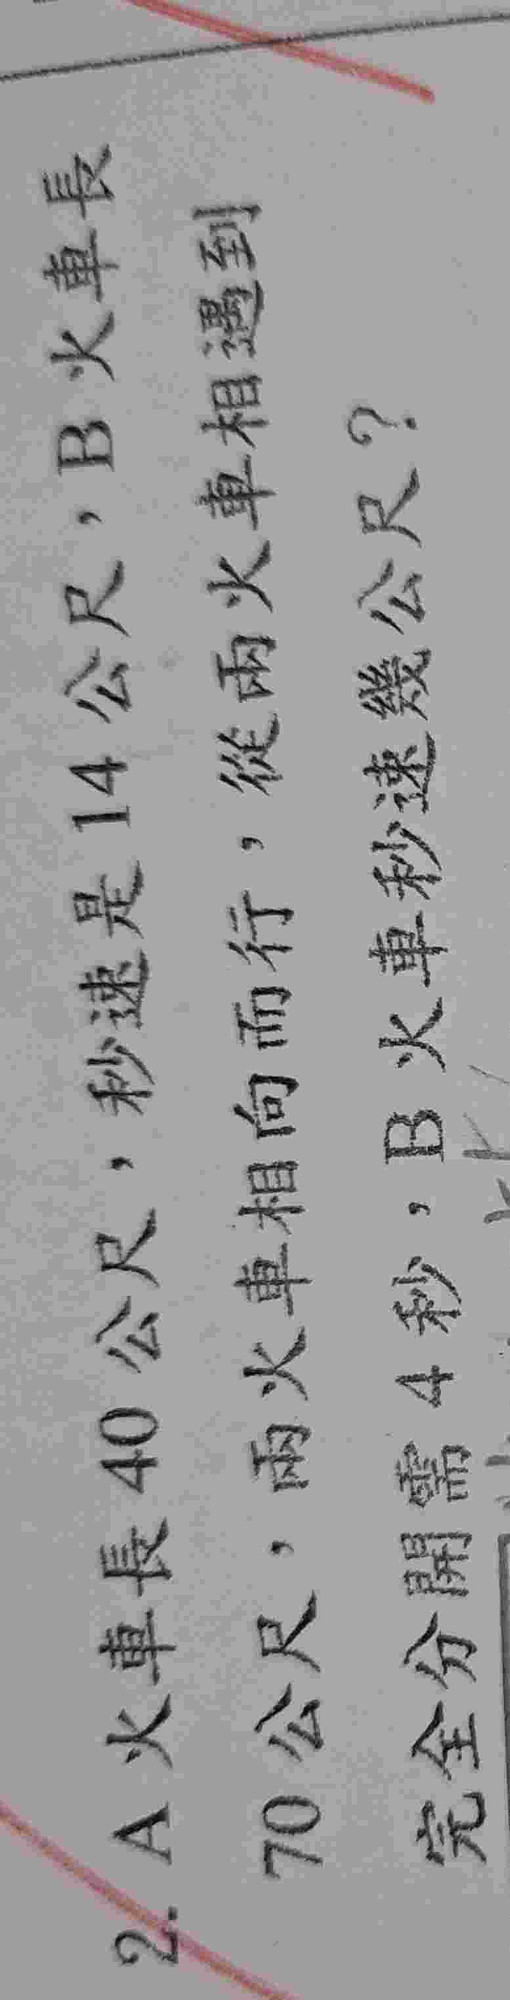 2. A 火車長 40 公尺，秒速是 14 公尺，B 火車長
70 公尺，兩火車相向而行，從兩火車相遇到
完全分開需 4 秒，B 火車秒速幾公尺？